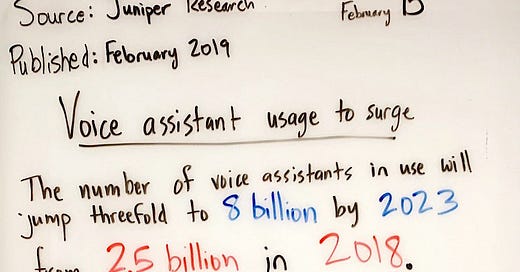 Source: Juniper Research
February
Published: February 2019
Voice assistant usage to surge
The number of voice assistants in use will
jump threefold to 8 billion by 2023
from 2.5 billion in 2018.